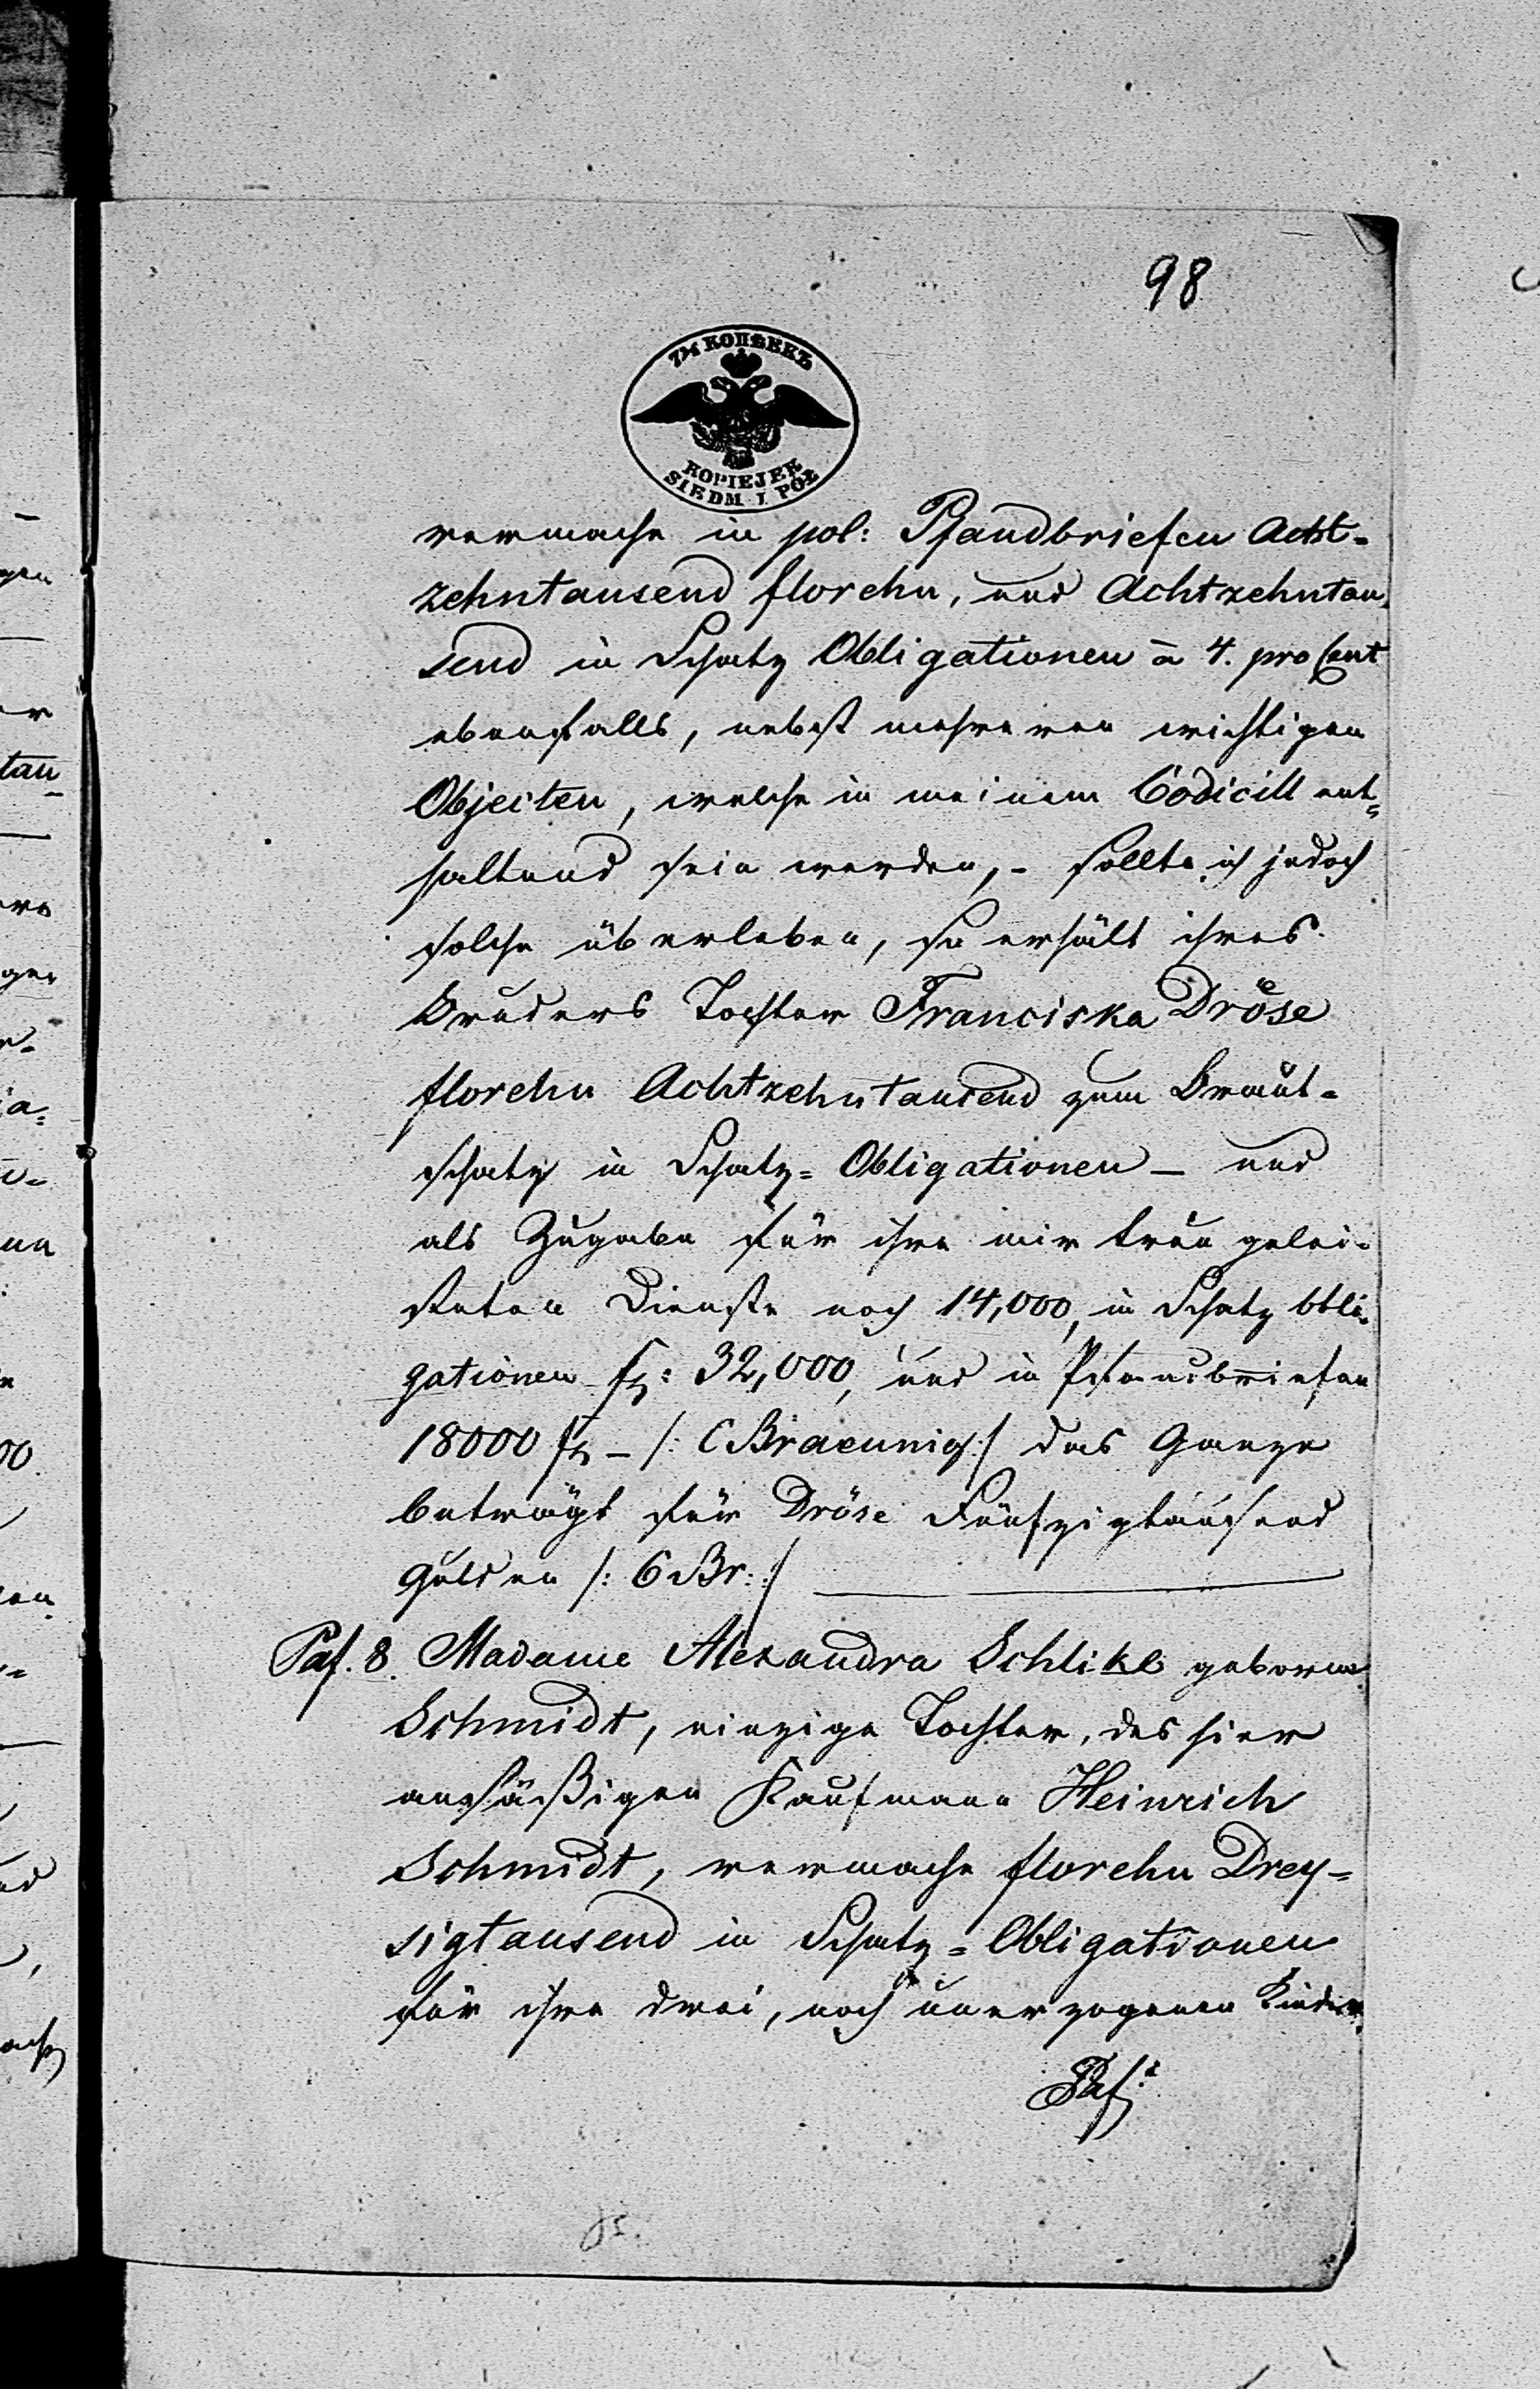 98
7½ КОПѢЕКЪ
KOPIEJEK
SIEDM I PÓŁ
vermache in pol: Pfandbriefen Acht-
zehntausend florehn, und Achtzehntau-
send in Schatz Obligationen à 4. pro Cent
ebenfalls, nebst mehreren wichtigen
Objecten, welche in meinem Codicill ent=
haltend sein werden, - sollte ich jedoch
solche überleben, so erhält ihres
Bruders Tochter Franciska Dröse
florehn Achtzehntausend zum Braut-
schatz in Schatz=Obligationen — und
als Zugabe für ihre mir treu gelei-
steten Dienste noch 14,000, in Schatz Obli-
gationen f: 32,000, und in Pfandbriefen
18000 f – /: C Braeunig :/ das Ganze
beträgt für Dröse Fünfzigtausend
Gulden /: C Br: :/
Paf. 8. Madame Alexandra Schlike geborne
Schmidt, einzige Tochter, des hier
ansäßigen Kaufmann Heinrich
Schmidt, vermache florehn Drey-
sigtausend in Schatz=Obligationen
für ihre drei, noch unerzogenen Kinder.
Paf: